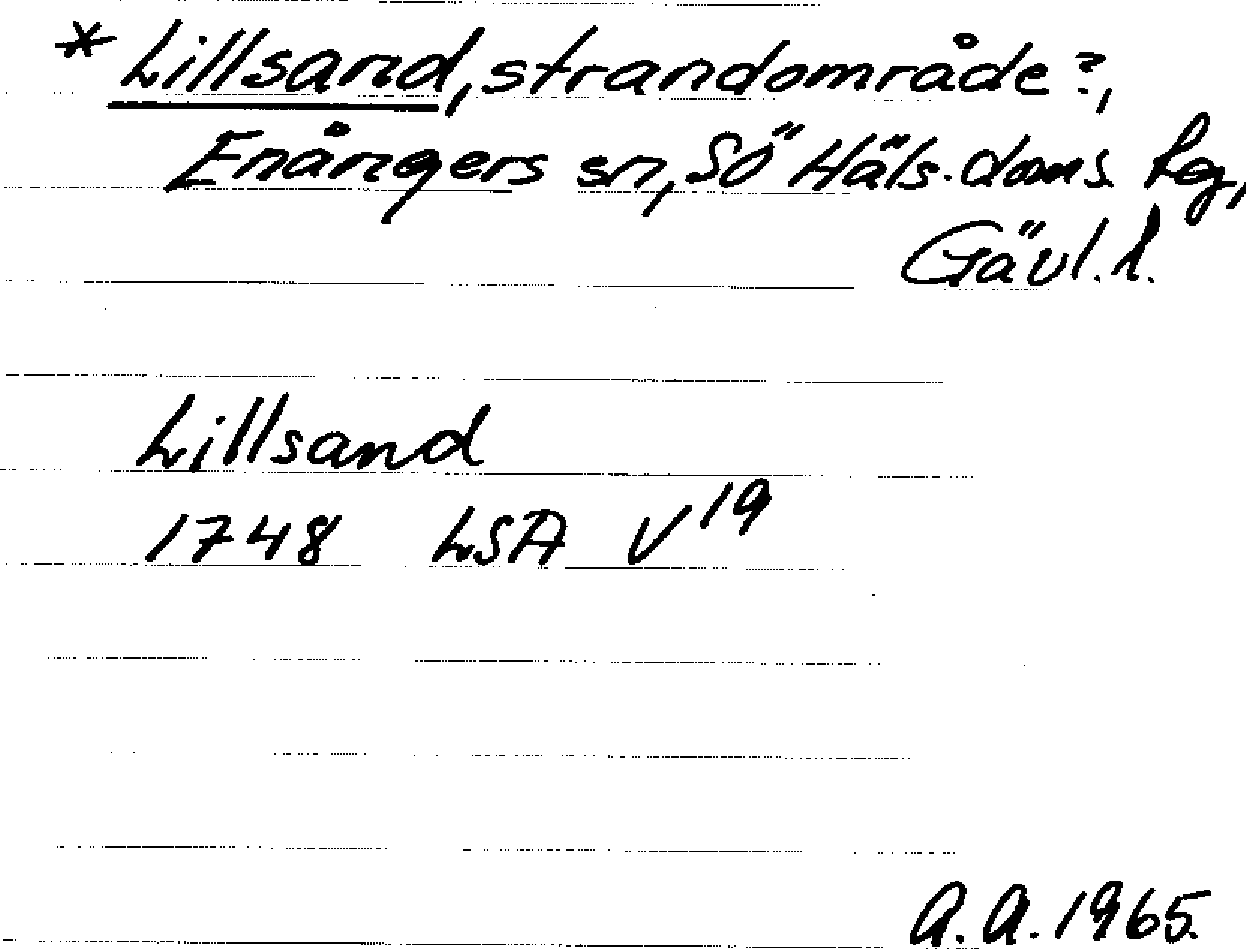 * Lillsand, strandområde?,
Enångers sn, SÖ Häls. doms. hg,
Gävl. l.
Lillsand
1748 LSA V19
A.A. 1965.